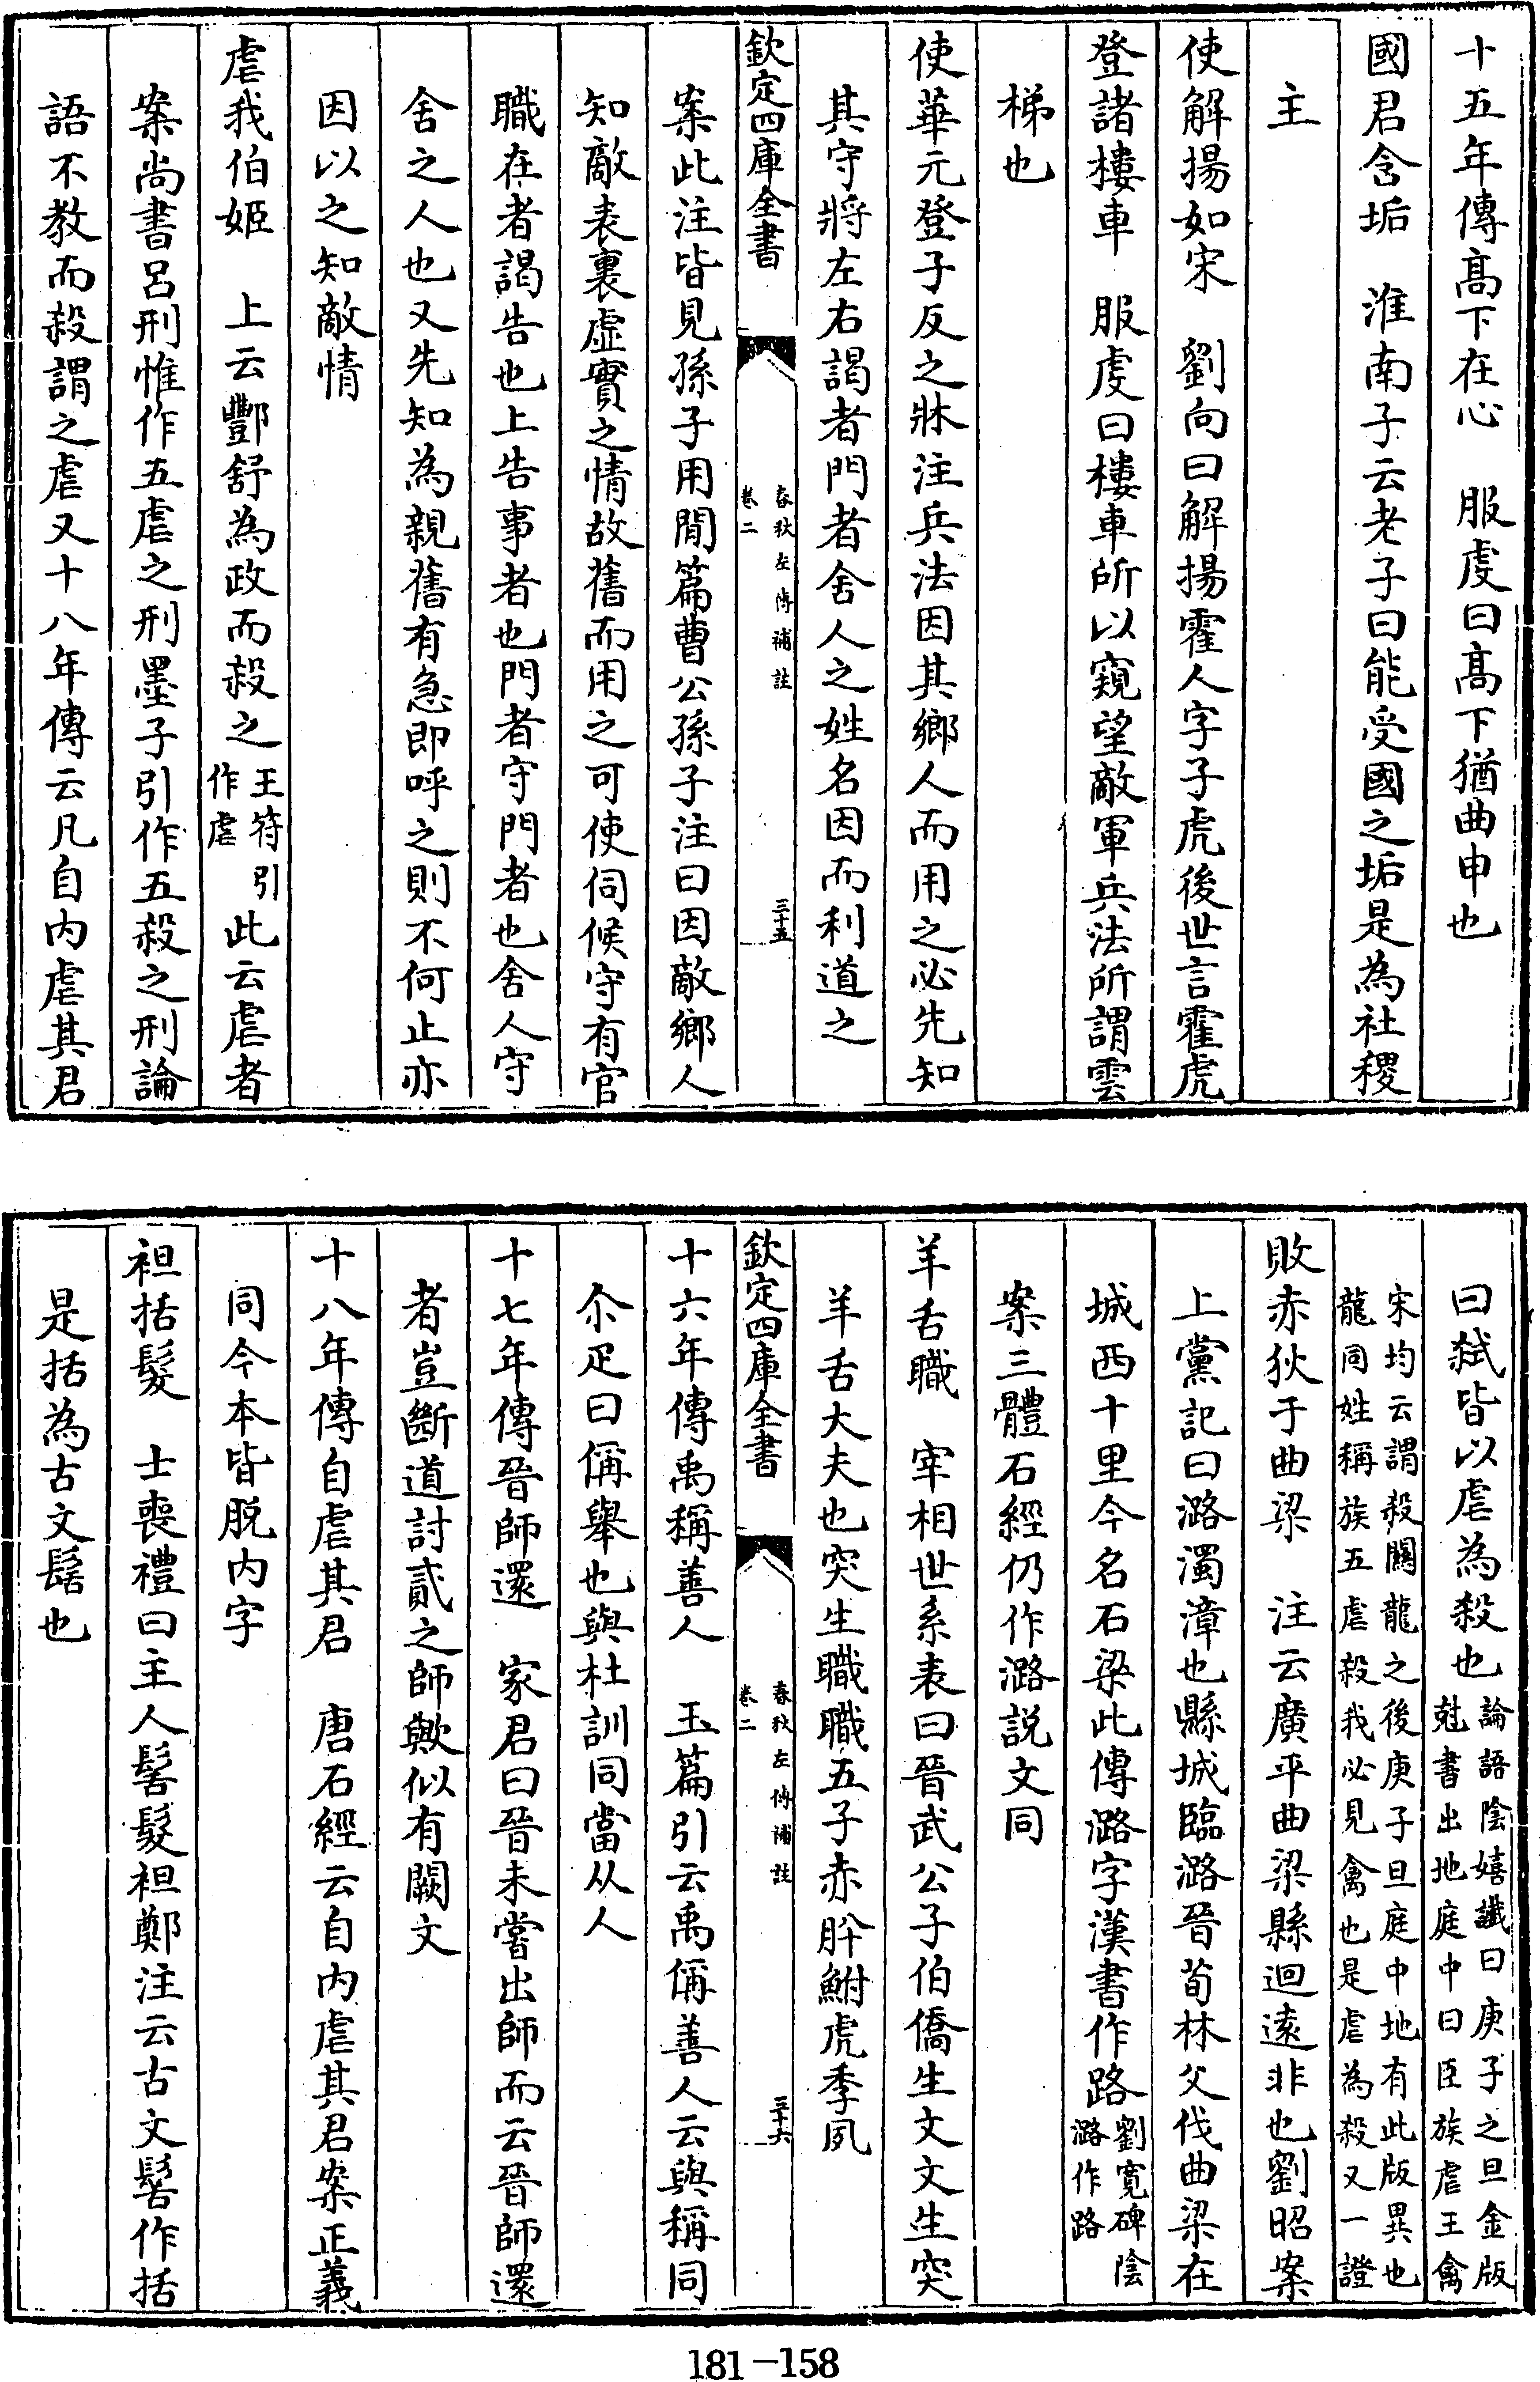 十五年傳髙下在心　服虔曰髙下猶曲申也
國君含垢　淮南子云老子曰能受國之垢是為社稷
主
使解揚如宋　劉向曰解揚霍人字子虎後世言霍虎
登諸樓車　服虔曰樓車所以窺望敵軍兵法所謂雲
梯也
使華元登子反之牀注兵法因其鄉人而用之必先知
其守將左右謁者門者舍人之姓名因而利道之
欽定四庫全書
春秋左傳補註
卷二
三十五
案此注皆見孫子用閒篇曹公孫子注曰因敵鄉人
知敵表裏虛實之情故舊而用之可使伺候守有官
職在者謁告也上告事者也門者守門者也舍人守
舍之人也又先知為親舊有急即呼之則不何止亦
因以之知敵情
虐我伯姬　上云酆舒為政而殺之王符引作虐此云虐者
案尚書呂刑惟作五虐之刑墨子引作五殺之刑論
語不教而殺謂之虐又十八年傳云凡自内虐其君
曰弑皆以虐為殺也論語陰嬉讖曰庚子之旦金版尅書出地庭中曰臣族虐王禽
宋均云謂殺關龍之後庚子旦庭中地有此版異也龍同姓稱族五虐殺我必見禽也是虐為殺又一證
敗赤狄于曲梁　注云廣平曲梁縣迴遠非也劉昭案
上黨記曰潞濁漳也縣城臨潞晉荀林父伐曲梁在
城西十里今名石梁此傳潞字漢書作路劉寬碑陰潞作路
案三體石經仍作潞説文同
羊舌職　宰相世系表曰晉武公子伯僑生文文生突
羊舌大夫也突生職職五子赤肸鮒虎季夙
欽定四庫全書
春秋左傳補註
卷二
三十六
十六年傳禹稱善人　玉篇引云禹偁善人云與稱同
尒疋曰偁舉也與杜訓同當从人
十七年傳晉師還　家君曰晉未嘗出師而云晉師還
者豈斷道討貳之師歟似有闕文
十八年傳自虐其君　唐石經云自内虐其君案正義
同今本皆脱内字
袒括髮　士喪禮曰主人髺髮袒鄭注云古文髺作括
是括為古文髺也
181-158